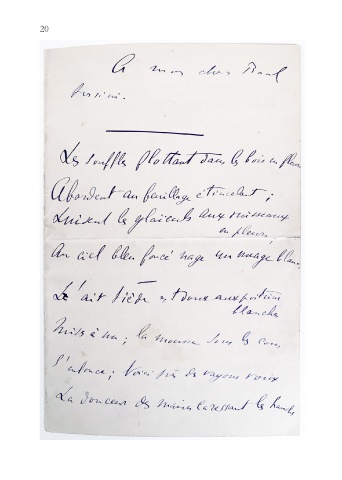 20
A mon cher Raoul
Les souffles flottant dans les bois en fleurs
Abordent au feuillage étincelant ;
Luisent les glaïeuls aux ruisseaux
en pleurs,
Au ciel bleu foncé nage un nuage blanc.
L'air tiède est doux aux poitrines
blanches
Mises à nu ; la mousse sous les cous
S'enfonce ; Voici près des rayons roux
La douceur des mains caressant les hanches